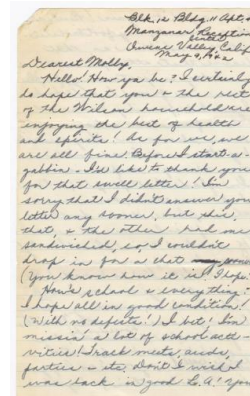 Blk. 12 Bldg. 11 Apt.
Manzanar Reception
Center
Owens Valley, Calif
May 4, 1942
Dearest Molly,
Hello! How ya be? I certainly
do hope that you & the rest
of the Wilson household are
enjoying the best of health
and spirits! As for we, we
are all fine. Before I start a
gabbin - I'd like to thank you
for that swell letter! I'm
sorry that I didn't answer your
letter any sooner, but this,
that, & the other had me
sandwiched, so, I couldn't
drop in for a chat
(You know how it is! I hope)
How's school & everything?
I hope all in good condition!
(With no defects!) I bet, I'm
missin' a lot of school acti-
vities! Track meets, auds,
parties & etc. Don't I wish I
was back in good L.A! You